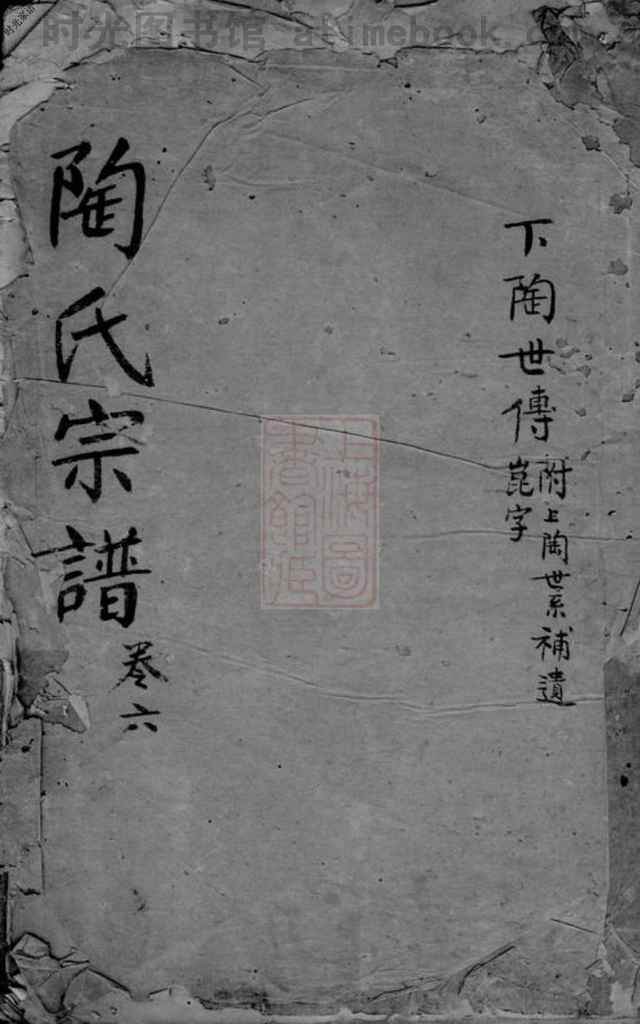 时光图书馆 afimebook.com
下陶世傳
附上陶世系補遺
崑字
陶氏宗譜
卷六